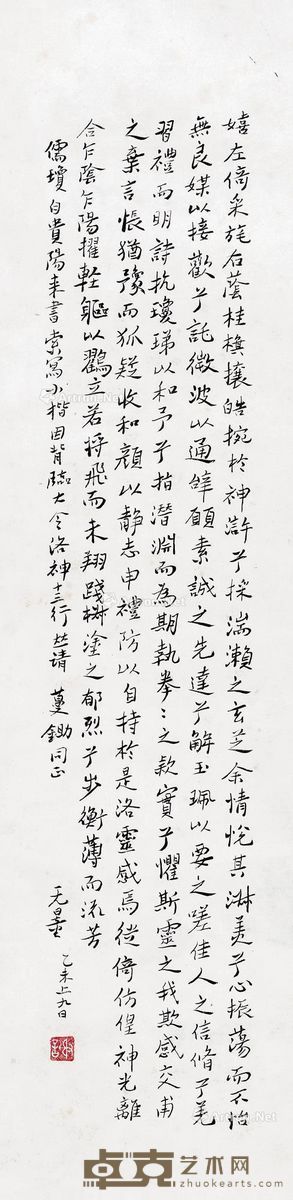 嬉左倚采旄右蔭桂旗攘皓捥於神滸兮採湍瀨之玄芝余情悅其淋美兮心振蕩而不怡
無良媒以接歡兮託微波以通辭願素誠之先達兮解玉珮以要之嗟佳人之信脩兮羌
習禮而明詩抗瓊珶以和予兮指潛淵而為期執拳〻之款實兮懼斯靈之我欺感交甫
之棄言悵猶豫而狐疑收和顏以静志申禮防以自持於是洛靈感焉徙倚仿偟神光離
合乍蔭乍陽擢輕軀以鸖立若将飛而未翔踐椒塗之郁烈兮步衡薄而流芳
儒瓊自貴陽来書索寫小楷因背臨大令洛神十三行 請 蔓鋤同正
无量 乙未上九日
卓克艺术网
zhuokearts.com